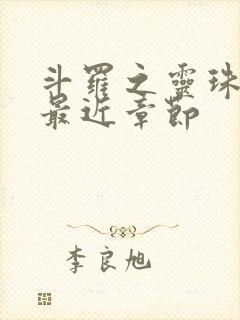 斗羅之靈珠
最近章節
李良旭